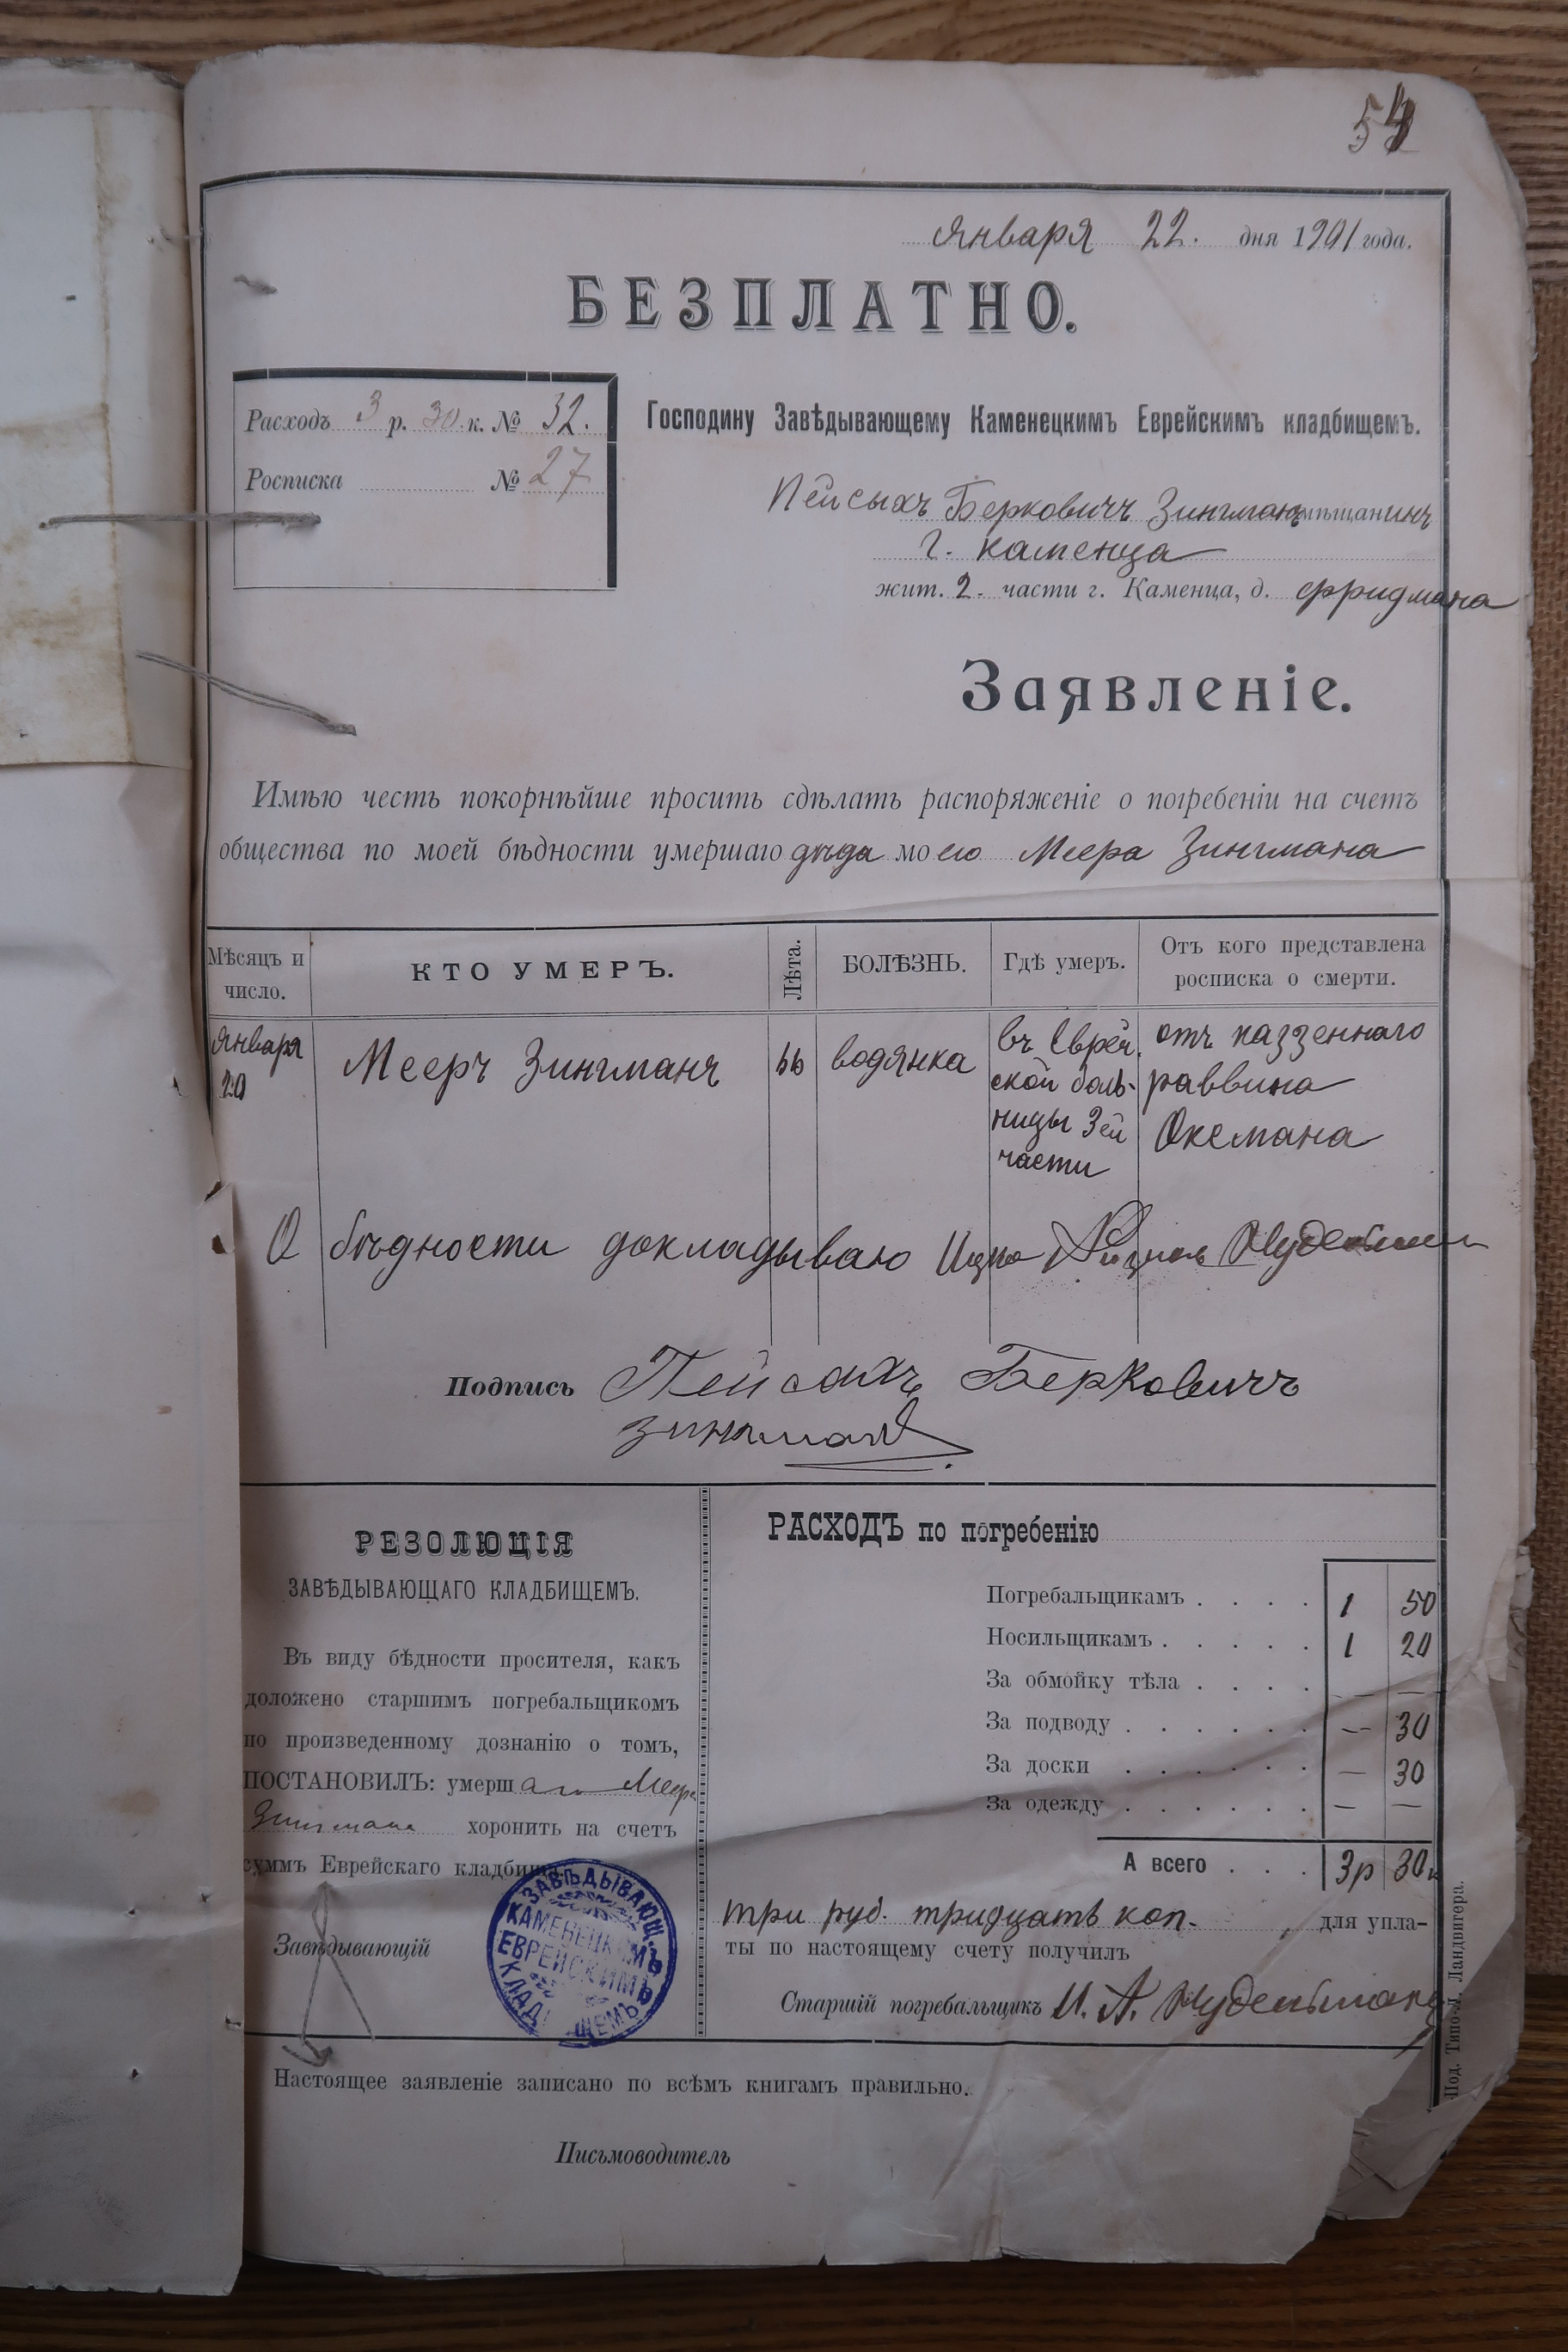 54
Января 22. дня 1901 года.
БЕЗПЛАТНО.
Расходъ 3 р. 30 к. № 32.
Росписка № 27
Господину Завѣдывающему Каменецкимъ Еврейскимъ кладбищемъ.
Пейсыхъ Берковичъ Зингманъ мѣщанинъ
г. Каменца
жит. 2. части г. Каменца, д. Фридмана
Заявленіе.
Имѣю честь покорнѣйше просить сдѣлать распоряженіе о погребеніи на счетъ
общества по моей бѣдности умершаго дѣда моего Меера Зингмана
Мѣсяцъ и число.
КТО УМЕРЪ.
Лѣта.
БОЛѢЗНЬ.
Гдѣ умеръ.
Отъ кого представлена росписка о смерти.
Января 20
Мееръ Зингманъ
66
водянка
въ Еврей.
ской боль-
ницы 3ей
части
отъ каззеннаго
раввина
Оксмана
О бѣдности докладываю Ицко Нудельман
Подпись Пейсахъ Берковичъ
Зингман
РЕЗОЛЮЦІЯ
ЗАВѢДЫВАЮЩАГО КЛАДБИЩЕМЪ.
Въ виду бѣдности просителя, какъ
доложено старшимъ погребальщикомъ
по произведенному дознанію о томъ,
ПОСТАНОВИЛЪ: умершаго Меера
Зингмана хоронить на счетъ
суммъ Еврейскаго кладбища
Завѣдывающій
ЗАВѢДЫВАЮЩ.
КАМЕНЕЦКИМЪ
ЕВРЕЙСКИМЪ
КЛАДБИЩЕМЪ
РАСХОДЪ по погребенію
Погребальщикамъ . . . . 1 50
Носильщикамъ . . . . . 1 20
За обмойку тѣла . . . . — —
За подводу . . . . . . — 30
За доски . . . . . . — 30
За одежду . . . . . . — —
А всего . . . 3р 30к
три руб. тридцать коп. , для упла-
ты по настоящему счету получилъ
Старшій погребальщикъ И. А. Нудельманъ
Под. Типо-Л. Ландвигера.
Настоящее заявленіе записано по всѣмъ книгамъ правильно.
Письмоводитель